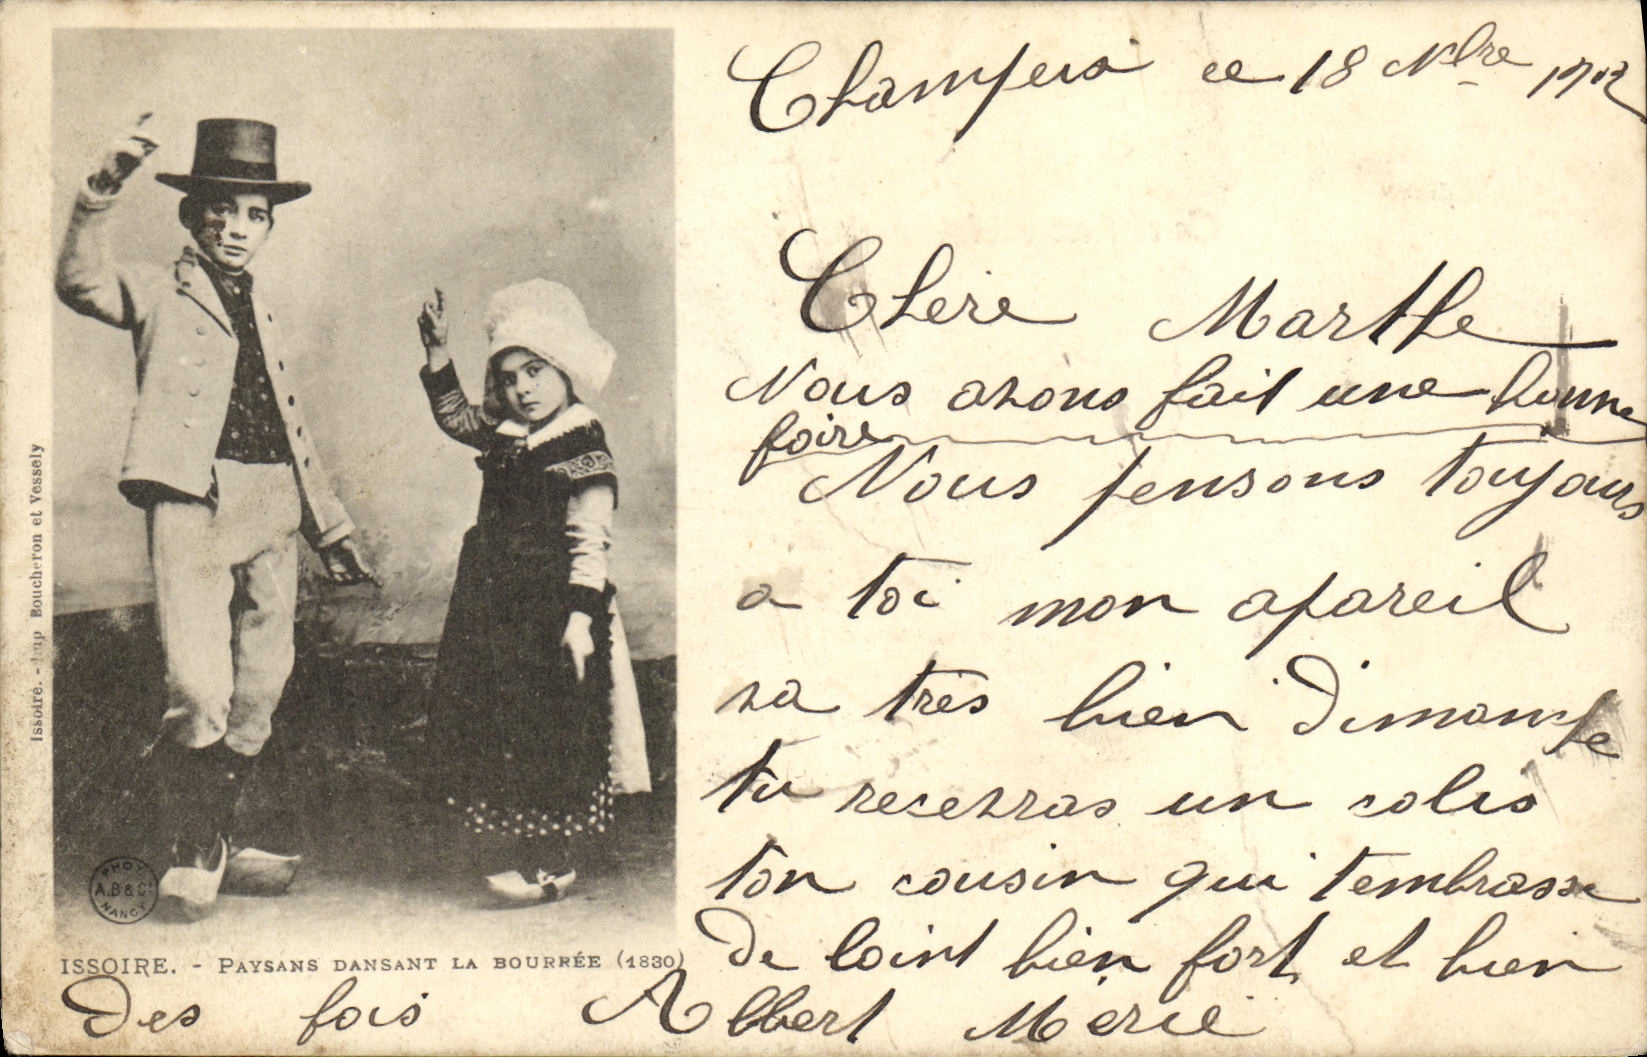 Champeix ce 18 Nbre 1902
Chère Marthe
Nous avons fait une bonne
foire
Nous pensons toujours
a toi mon apareil
va très bien Dimanche
tu recevras un colis
ton cousin qui t'embrasse
De loint bien fort et bien
Des fois Albert Merie
ISSOIRE. - PAYSANS DANSANT LA BOURRÉE (1830)
Issoire. - Imp Boucheron et Vessely
PHOT.
A.B & Cie
NANCY